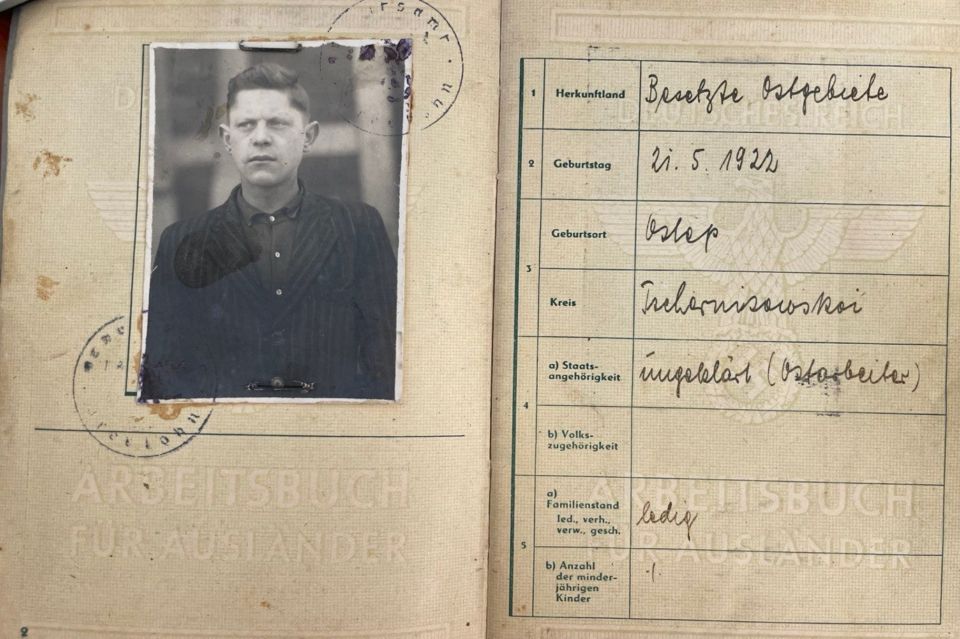 ARBEITSBUCH
FÜR AUSLÄNDER
2
DEUTSCHES REICH
1 Herkunftland Besetzte Ostgebiete
2 Geburtstag 21. 5. 1922
3 Geburtsort Ostap
Kreis Tschernikowskoi
4 a) Staats-
angehörigkeit ungeklärt (Ostarbeiter)
b) Volks-
zugehörigkeit
5 a)
Familienstand
led., verh.,
verw., gesch. ledig
b) Anzahl
der minder-
jährigen
Kinder
ARBEITSBUCH
FÜR AUSLÄNDER